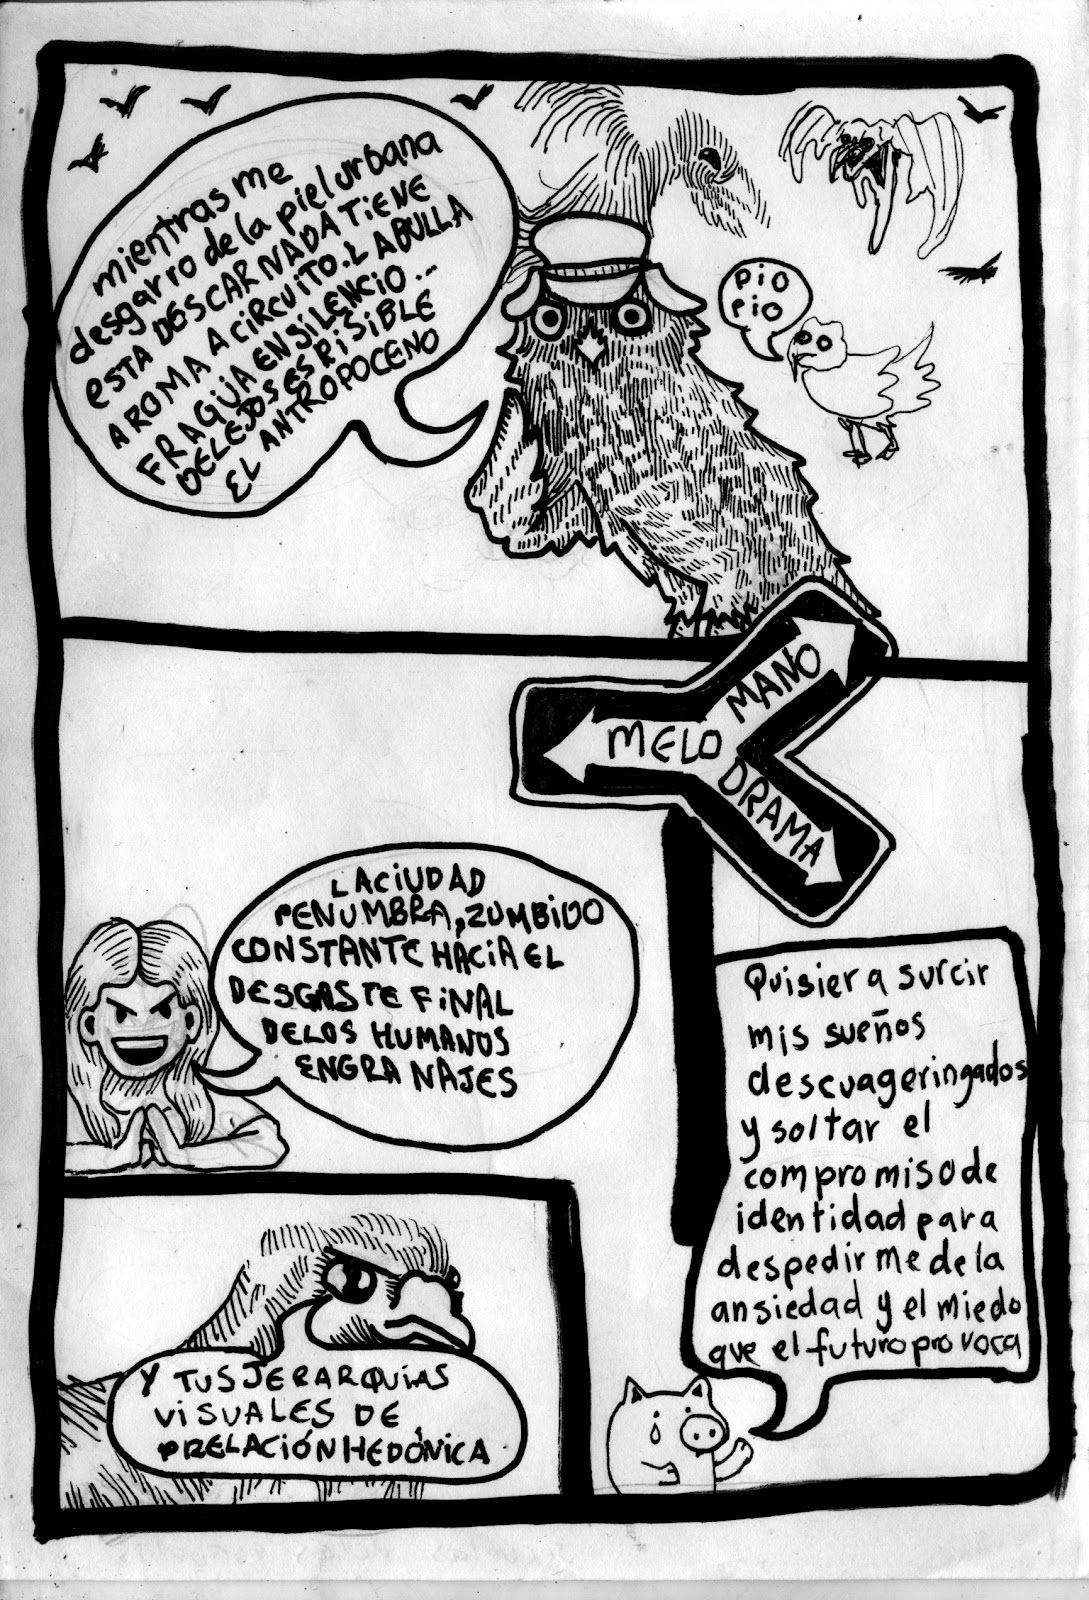 mientras me
desgarro de la piel urbana
ESTA DESCARNADA TIENE
AROMA A CIRCUITO. LA BULLA
FRAGUA EN SILENCIO...
DELEJOS ES RISIBLE
EL ANTROPOCENO
PIO
PIO
MELO
MANO
DRAMA
LA CIUDAD
PENUMBRA, ZUMBIDO
CONSTANTE HACIA EL
DESGASTE FINAL
DE LOS HUMANOS
ENGRANAJES
Quisiera surcir
mis sueños
descuageringados
y soltar el
compromiso de
identidad para
despedirme de la
ansiedad y el miedo
que el futuro provoca
Y TUS JERARQUÍAS
VISUALES DE
PRELACIÓN HEDÓNICA